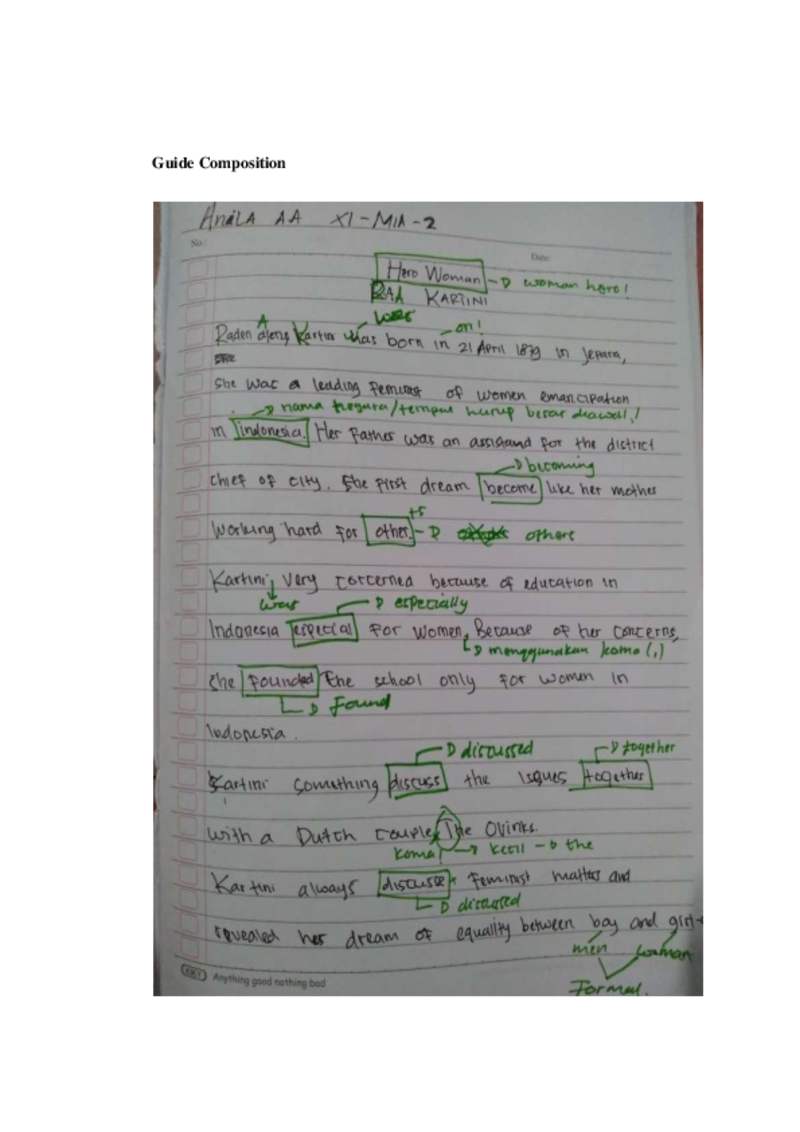 Guide Composition
Anila AA XI-MIA-2
No.:
Date:
Hero Woman → woman hero!
RAA KARTINI
was on!
A K
Raden ajeng kartini was born in 21 April 1879 in Jepara,
She was a leading feminist of women emancipation
→ nama negara/tempat hurup besar diawali!
in indonesia. Her father was an assistand for the district
→ becoming
chief of city. She first dream become like her mother
+s
working hard for other. → others
Kartini very concerned because of education in
was → especially
Indonesia especial for women, Because of her concerns,
→ menggunakan koma (,)
she founded the school only for women in
→ Found
Indonesia.
→ discussed → together
Kartini something discuss the Isques together
with a Dutch couple The Ovinks.
koma! → kecil → the
Kartini always discusse feminist matters and
→ discussed
revealed her dream of equality between boy and girl
men woman
Formal.
Anything good nothing bad